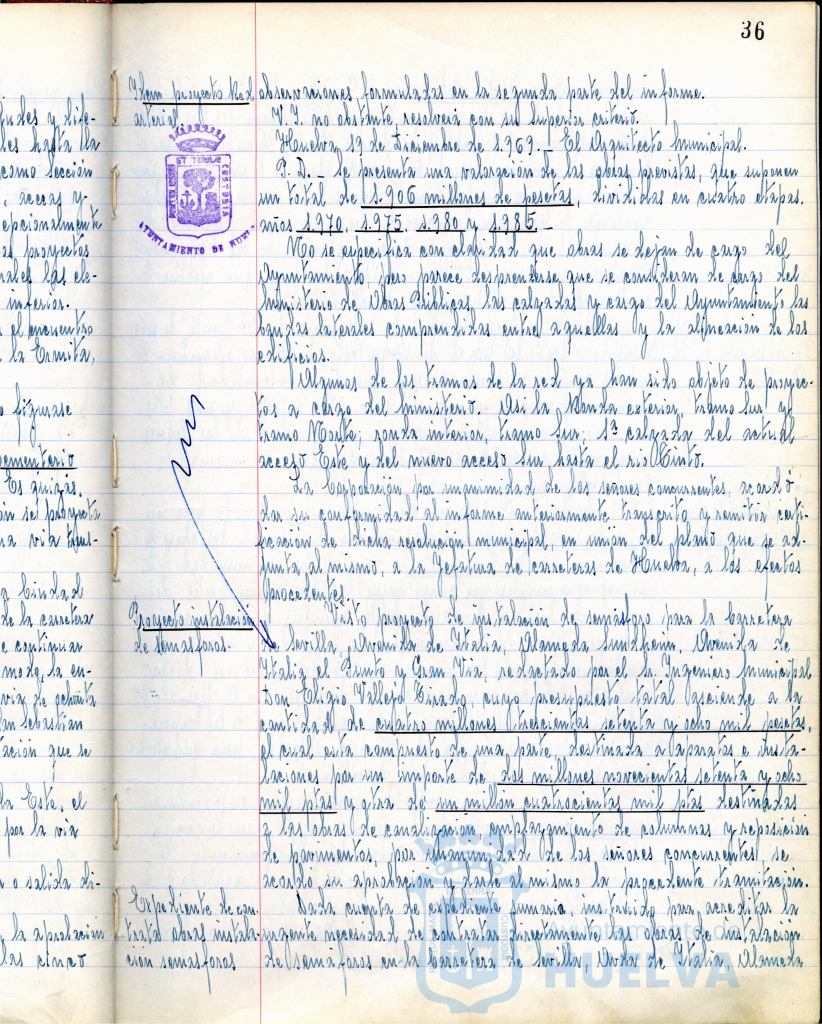 36
Idem proyecto Red
arterial.
observaciones formuladas en la segunda parte del informe.
V.I. no obstante, resolverá con su superior criterio.
Huelva 19 de Diciembre de 1.969.- El Arquitecto Municipal.
P.D.- Se presenta una valoración de las obras previstas, que suponen
un total de 1.906 millones de pesetas, divididas en cuatro etapas.
años 1.970, 1.975, 1.980 y 1.985.-
No se especifica con claridad que obras se dejan de cargo del
Ayuntamiento, pero parece desprenderse que se consideran de cargo del
Ministerio de Obras Públicas, las calzadas y cargo del Ayuntamiento las
bandas laterales comprendidas entre aquellas y la alineación de los
edificios.
Algunos de los tramos de la red ya han sido objeto de proyec-
tos a cargo del Ministerio. Asi la Ronda exterior, tramo Sur y
tramo Norte; ronda interior, tramo Sur; 1ª calzada del actual
acceso Este y del nuevo acceso Sur hasta el rio Tinto.
La Corporación, por unanimidad de los señores concurrentes, acordó
dar su conformidad al informe anteriormente transcrito y remitir certi-
ficación de dicha resolución municipal, en unión del plano que se ad-
junta al mismo, a la Jefatura de carreteras de Huelva, a los efectos
procedentes.
Proyecto instalación
de semasforos.
Visto proyecto de instalación de semasforo para la Carretera
a Sevilla, Avenida de Italia, Alameda Sundheim, Avenida de
Italia el Punto y Gran Via, redactado por el Sr. Ingeniero Municipal
Don Eligio Vallejo Tirado, cuyo presupuesto total asciende a la
cantidad de cuatro millones trescientas setenta y ocho mil pesetas,
el cual esta compuesto de una parte, destinada a aparatos e insta-
laciones por un importe de dos millones novecientas setenta y ocho
mil ptas y otra de un millon cuatrocientas mil ptas destinadas
a las obras de canalización emplazamiento de columnas y reposición
de pavimentos, por unanimidad de los señores concurrentes se
acordo su aprobación y darle al mismo la procedente tramitación.
Expediente de con-
trata obras instala-
cion semasforos
Dada cuenta de expediente sumario, instruido para acreditar la
urgente necesidad de contratar directamente las obras de instalación
de semaforos en la Carretera de Sevilla, Avda de Italia, Alameda
AYUNTAMIENTO DE HUELVA
Ayuntamiento de
HUELVA